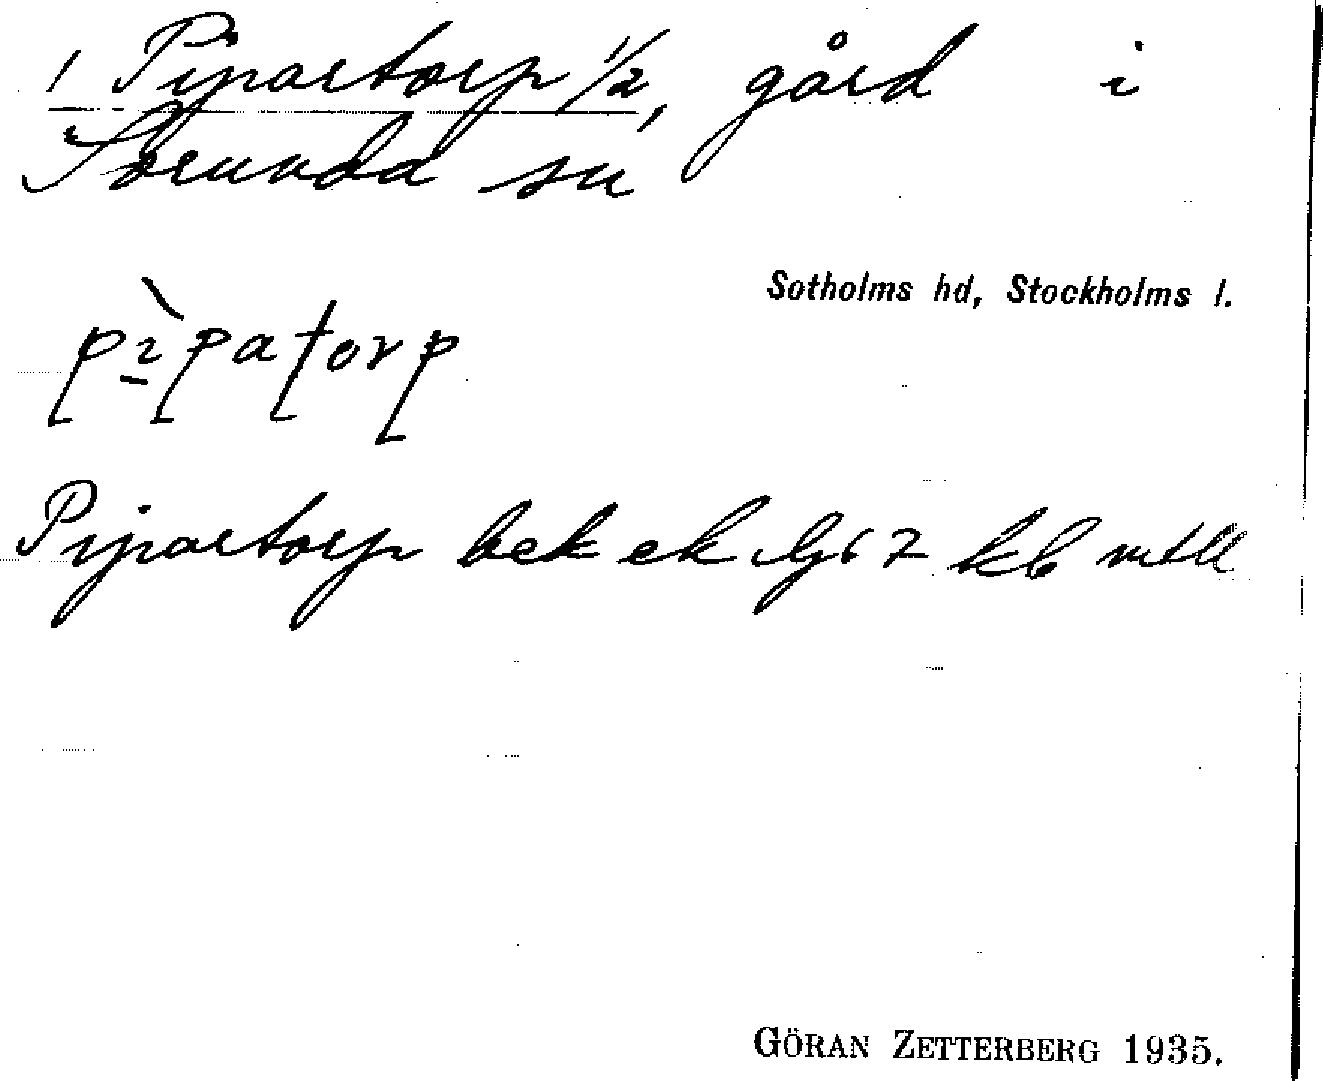 1 Pipartorp 1/2, gård i
Sorunda sn
Sotholms hd, Stockholms l.
pìpatorp
Pipartorp bek ek bl 67 kb mtll
GÖRAN ZETTERBERG 1935.